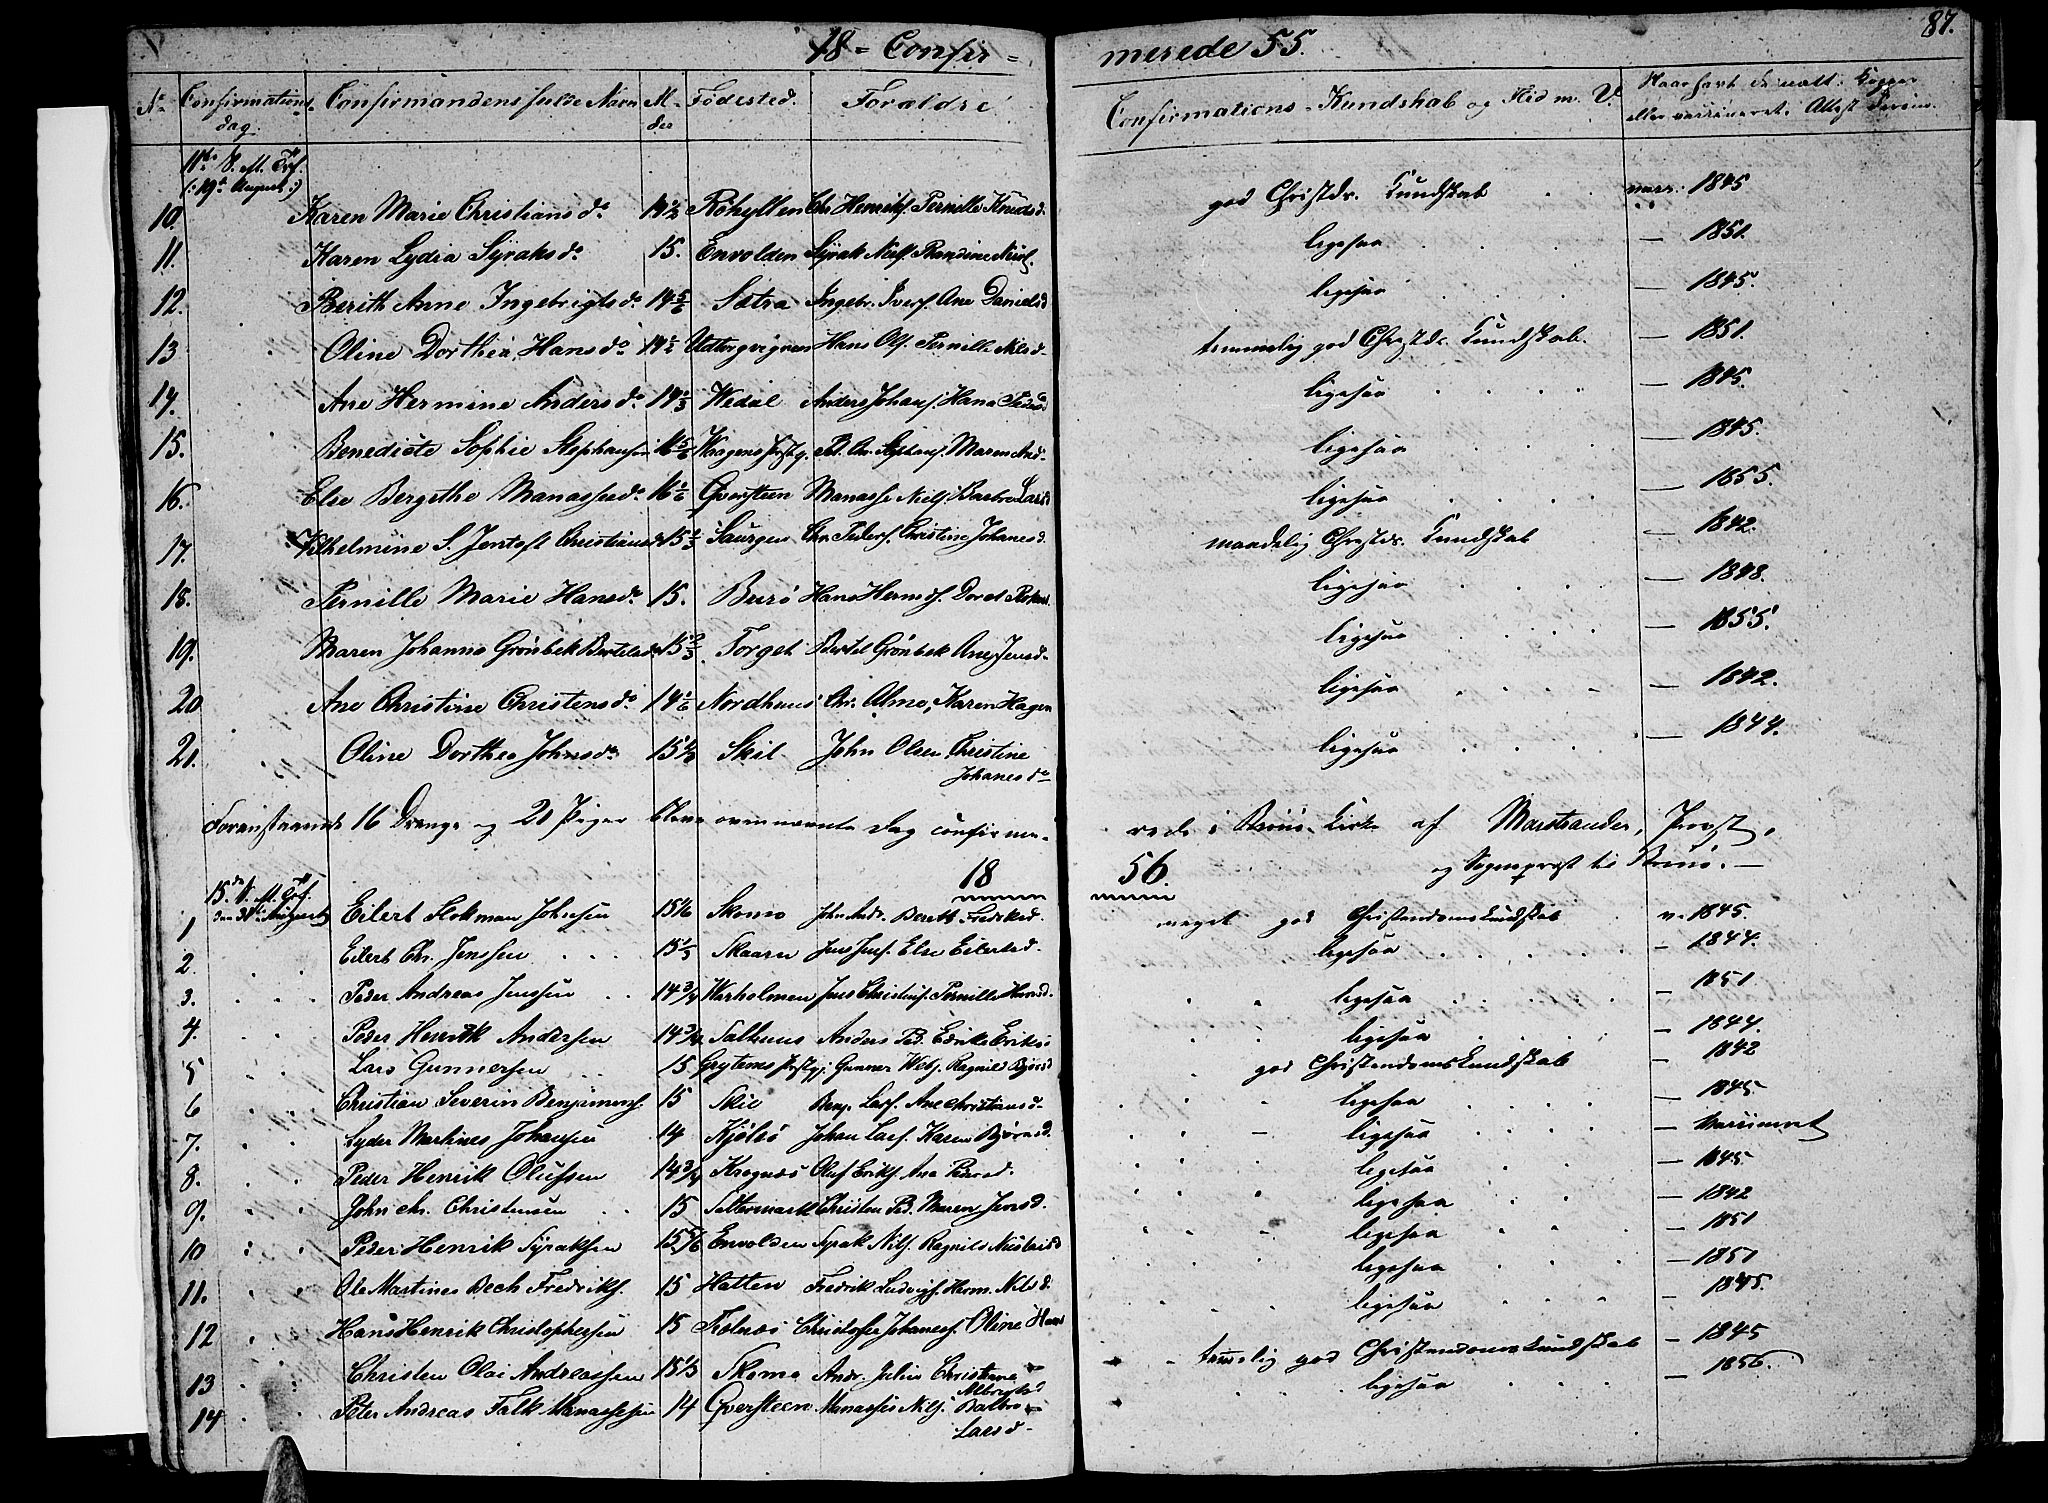 18 = Confir = merede 55. 87.
No Confirmations dag. Confirmandens fulde Navn Alder Fødested. Forældre Confirmations-Kundskab og Flid m. V. Naar havt de natl: Kopper eller vaccineret. Attest derom.
11te S. eft. Trf. (: 19de August :)
10. Karen Marie Christiansdr 14 1/2 Røhyllen Chr. Henriks. Pernille Knudsd. god Christds. Kundskab vacc. 1845
11. Karen Lydia Syraksdr 15. Envolden Syrak Nils. ligesaa — 1851.
12. Berith Anne Ingebrigtsdr 14 5/6 Sætra Ingebr. Ivers. Ane Danielsd ligesaa — 1845.
13 Oline Dorthea Hansdr 14 1/2 Udtorgvignen Hans Ols. Pernille Nilsd. temmelig god Christds. Kundskab. — 1851.
14. Ane Hermine Andersdr 14 1/3 Wedal Anders Johans. Hana Pedersd ligesaa — 1845.
15. Benedicte Sophie Stephansen 16 5/6 Vaagens Prstg. Pet. Chr. Stephans. Maren And. ligesaa — 1845.
16. Else Bergethe Manassesdr 16 1/6 Qversteen Manasse Nils. Barbro Larsd ligesaa — 1855.
17. Vilhelmine S. Jentoft Christiansdr 15 1/3 Saurgen Chr. Peders. Christine Johanesd. maadelig Christds. Kundskab — 1842.
18. Pernille Marie Hansdr 15. Burø Hans Herm.s. ligesaa — 1848.
19. Maren Johanna Grønbek Bertelsdr 15 2/3 Torget Bertel Grønbek Ane Jensd. ligesaa — 1855.
20 Ane Christine Christensdr 14 1/6 Nordhuus Chr. Olmo, Karen Hagen ligesaa — 1842.
21. Oline Dorthea Johnsdr 15 1/2 Skil John Olsen Christine ligesaa — 1844.
Johanesdr
Foranstaaende 16 Drenge og 21 Piger bleve ovennævnte Dag confirmerede i Brønø Kirke af Marstrander, Provst,
og Sognepræst til Brønø. —
18 56.
15de S. eft. Trf. den 31te August
1 Eilert Slokman Johnsen 15 1/6 Skomo John Andr. Bereth Fredriksd. meget god Christendomskundskab v. 1845.
2. Eilert Chr. Jenssen 15 1/3 Skaarn Jens Jens. Else Eilertsd. ligesaa — 1844.
3. Peder Andreas Jenssen 14 3/4 Warholmen Jens Christens. Pernille Hansd. ligesaa — 1851
4. Peder Henrik Andersen 14 3/4 Salhuus Anders Ped. Edrike Eriks. ligesaa — 1844.
5 Lars Gunnersen 15 Grytens Prstgj. Gunner Ragnild Bjørsd god Christendomskundskab — 1842
6 Christian Severin Benjamins. 15 Skil Benj. Lars. Ane Christiansd. ligesaa — 1845.
7. Lyder Martines Johansen 14 Kjølsø Johan Lars. Karen Bjørnsd. ligesaa — Vaccineret
8. Peder Henrik Olufsen 14 3/4 Kragnæs Oluf Eriks. Ane Pedersd. ligesaa — 1845.
9. John Chr. Christensen 15 Saltermark Christen Ped. Maren Jensd. ligesaa — 1842
10 Peder Henrik Syraksen 15 5/6 Envolden Syrak Nils. Ragnild ligesaa — 1851
11. Ole Martines Bech Fredriks. 15 Hatten Fredrik Ludvigs. Herm. Nilsd. ligesaa — 1851
12 Hans Henrik Christophersen 15 Tilnæs Christofer Johaness. Oline Hans ligesaa — 1845.
13 Christen Olai Andreassen 15 1/3 Skomo Andr. Julin Christiane temelig god Christendomskundskab — 1845
Albregtsd
14 Peter Andreas Falk Manassesen 14 Qversteen Manasses Nils. Balbro ligesaa — 1856.
Larsd.